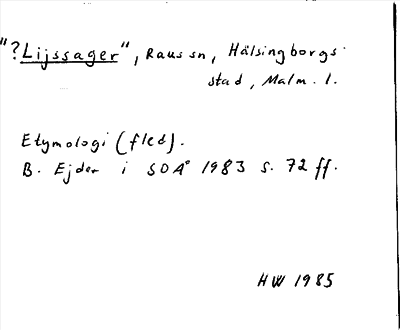 "?Lijssager", Raus sn, Hälsingborgs
stad, Malm. l.
Etymologi (fled).
B. Ejder i SOÅ 1983 s. 72 ff.
HW 1985